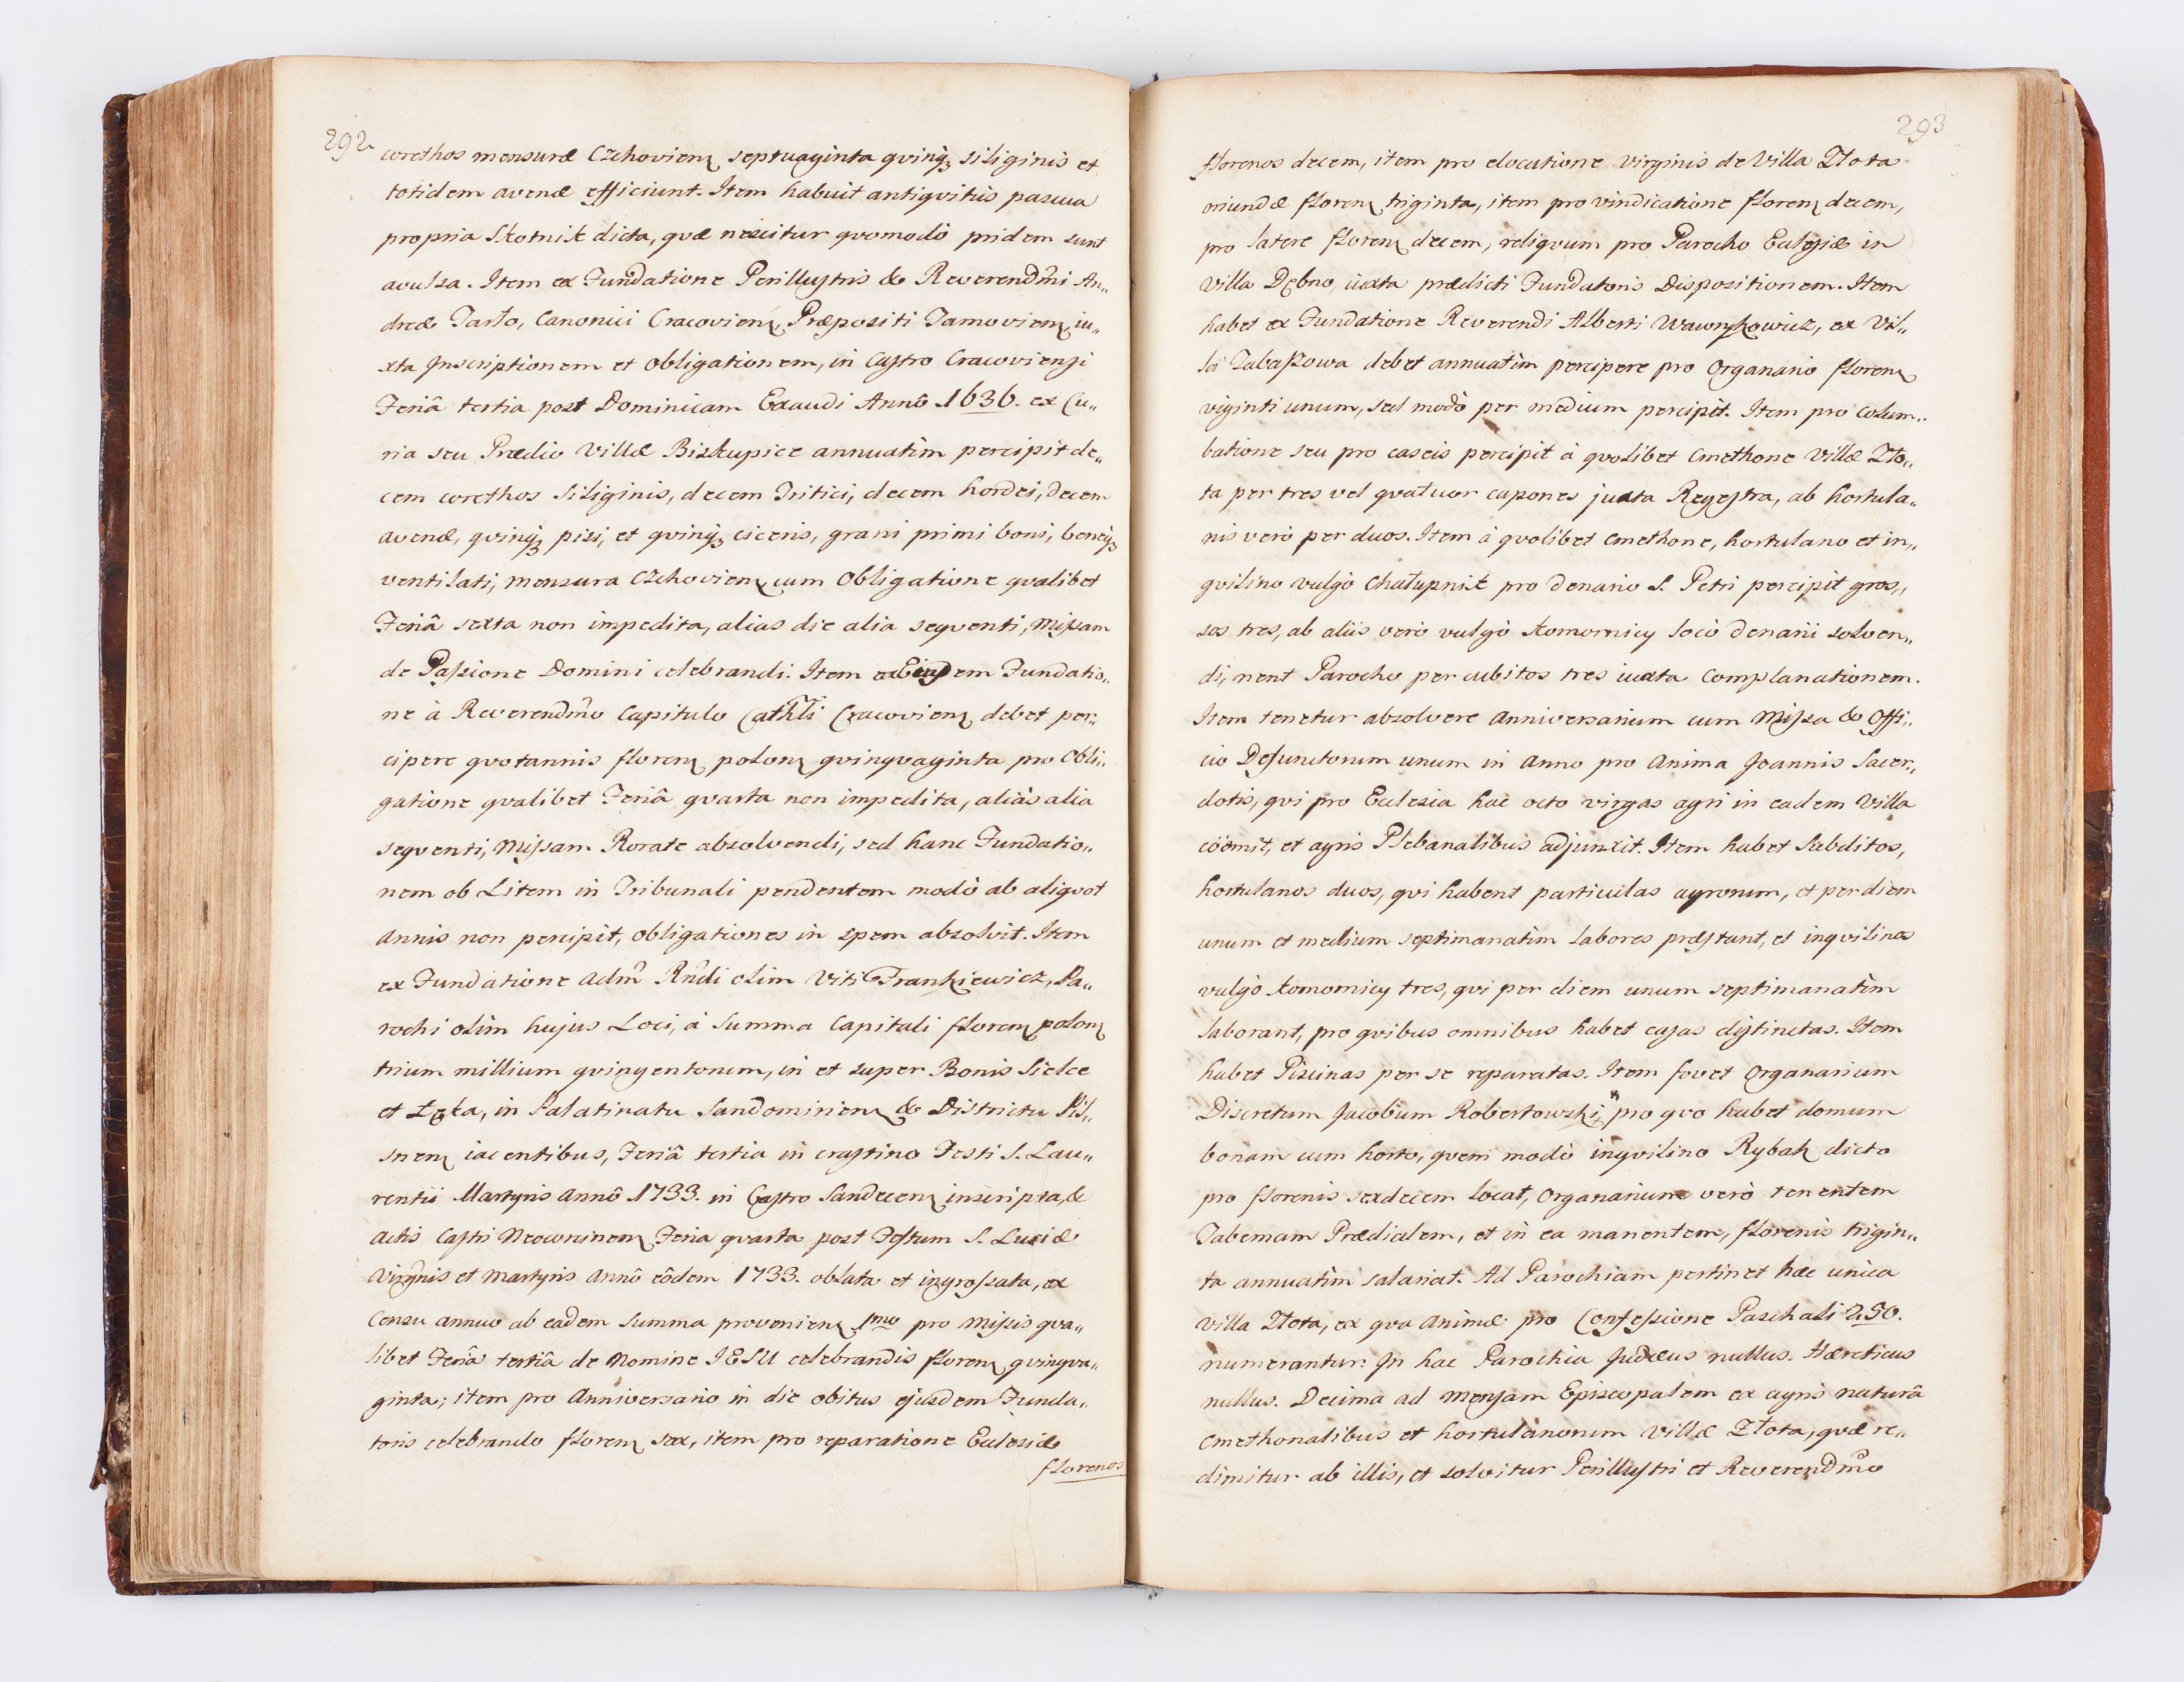 292
corethos mensuræ Czchovien septuaginta qvinqȝ siliginis et
totidem avenæ efficiunt. Item habuit antiqvitùs pascua
propria Skotnik dicta, qvæ nescitur qvomodò pridem sunt
avulsa. Item ex Fundatione Perillustris & Reverendm̃i An„
dreæ Tarło, Canonici Cracovien, Præpositi Tarnovien, iu„
xta Inscriptionem et Obligationem, in Castro Cracoviensi
Feriâ tertia post Dominicam Exaudi Annô 1636. ex Cu„
ria seu Prædio Villæ Biskupice annuatìm percipit de„
cem corethos Siliginis, decem Tritici, decem hordei, decem
avenæ, qvinqȝ pisi, et qvinqȝ ciceris, grani primi boni, beneqȝ
ventilati, mensura Czchovien cum Obligatione qvalibet
Feriâ sexta non impedita, alias die alia seqventi, Missam
de Passione Domini celebrandi. Item ex Eiusdem Fundatio„
ne à Reverendm̃o Capitulo Cathl̃i Cracovien debet per„
cipere qvotannis floren polon qvinqvaginta pro Obli„
gatione qvalibet Feriâ qvarta non impedita, aliàs alia
seqventi, Missam Rorate absolvendi, sed hanc Fundatio„
nem ob Litem in Tribunali pendentem modò ab aliqvot
Annis non percipit, obligationes in spem absolvit. Item
ex Fundatione Adm̃ Rñdi olim Viti Frankiewicz, Pa„
rochi olìm hujus Loci, à Summa Capitali floren polon
trium millium qvingentorum, in et super Bonis Sielce
et Łęka, in Palatinatu Sandomirien & Districtu Pil„
snen iacentibus, Feriâ tertia in crastino Festi S. Lau„
rentii Martyris Annô 1733. in Castro Sandecen inscripta, &
Actis Castri Neocorcinen Feria qvarta post Festum S. Luciæ
Virginis et Martyris Annô eôdem 1733. oblata et ingrossata, ex
Censu annuo ab eadem Summa provenien 1mo pro Missis qva„
libet Feriâ tertiâ de Nomine IESU celebrandis floren qvinqva„
ginta; item pro Anniversario in die obitus ejusdem Funda„
toris celebrando floren sex, item pro reparatione Ecclesiæ
florenos
293
florenos decem, item pro elocatione Virginis de Villa Złota
oriundæ floren triginta, item pro vindicatione floren decem,
pro latere floren decem, reliqvum pro Parocho Eclesiæ in
Villa Dębno, iuxta prædicti Fundatoris Dispositionem. Item
habet ex Fundatione Reverendi Alberti Wawrzkowicz, ex Vil„
la Tabaszowa debet annuatìm percipere pro Organario floren
viginti unum, sed modò per medium percipit. Item pro Colum„
batione seu pro caseis percipit à qvolibet Cmethone Villæ Zło„
ta per tres vel qvatuor capones juxta Regestra, ab hortula„
nis verò per duos. Item à qvolibet Cmethone, hortulano et in„
qvilino vulgò Chałupnik pro denario S. Petri percipit gros„
sos tres, ab aliis verò vulgò Komornicy locò denarii solven„
di, nent Parocho per cubitos tres iuxta Complanationem.
Item tenetur absolvere Anniversarium cum Missa & Offi„
cio Defunctorum unum in Anno pro Anima Joannis Sacer„
dotis, qvi pro Ecclesia hac octo virgas agri in eadem Villa
cöemit, et agris Plebanalibus adjunxit. Item habet Subditos,
hortulanos duos, qvi habent particulas agrorum, et per diem
unum et medium septimanatìm labores præstant, et inqvilinos
vulgò Komornicy tres, qvi per diem unum septimanatìm
laborant, pro qvibus omnibus habet casas distinctas. Item
habet Piscinas per se reparatas. Item fovet Organarium
Discretum Jacobum Robertowski, pro qvo habet domum
bonam cum horto, qvem modò inqvilino Rybak dicto
pro florenis sexdecem locat, Organarium verò tenentem
Tabernam Prædialem, et in ea manentem, florenis trigin„
ta annuatìm salariat. Ad Parochiam pertinet hæc unica
Villa Złota, ex qva Animæ pro Confessione Paschali 250.
numerantur. In hac Parochia Judæus nullus. Hæreticus
nullus. Decima ad Mensam Episcopalem ex agris naturâ
Cmethonalibus et hortulanorum Villæ Złota, qvæ re„
dimitur ab illis, et solvitur Perillustri et Reverendm̃o